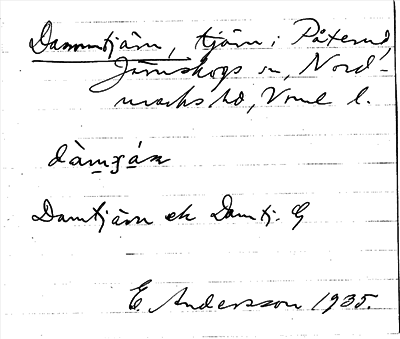 Dammtjärn, tjärn i Påterud,
Järnskogs sn, Nord-
marks hd, Vrml l.
dàmʒá̱n
Damtjärn ek Damtj. G
E Andersson 1935.